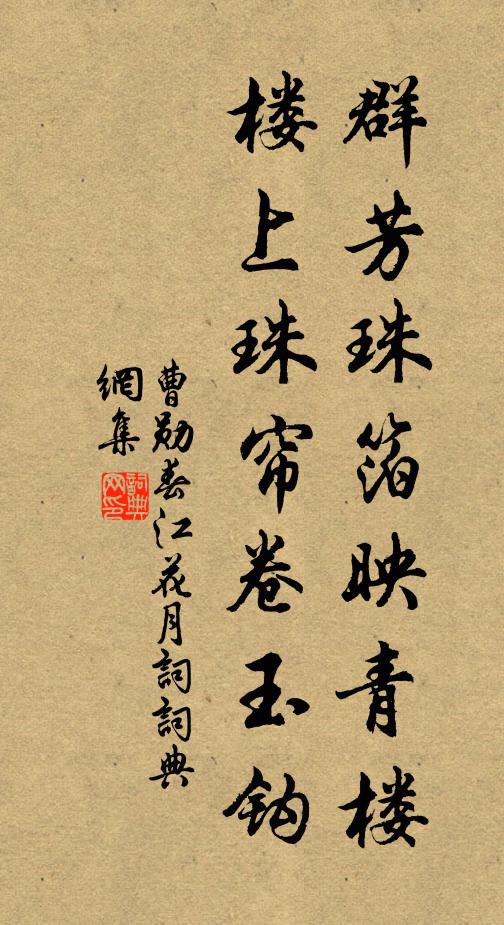 群芳珠箔映青楼
楼上珠帘卷玉钩
曹勋春江花月詞詞典
網集
詞典
网印